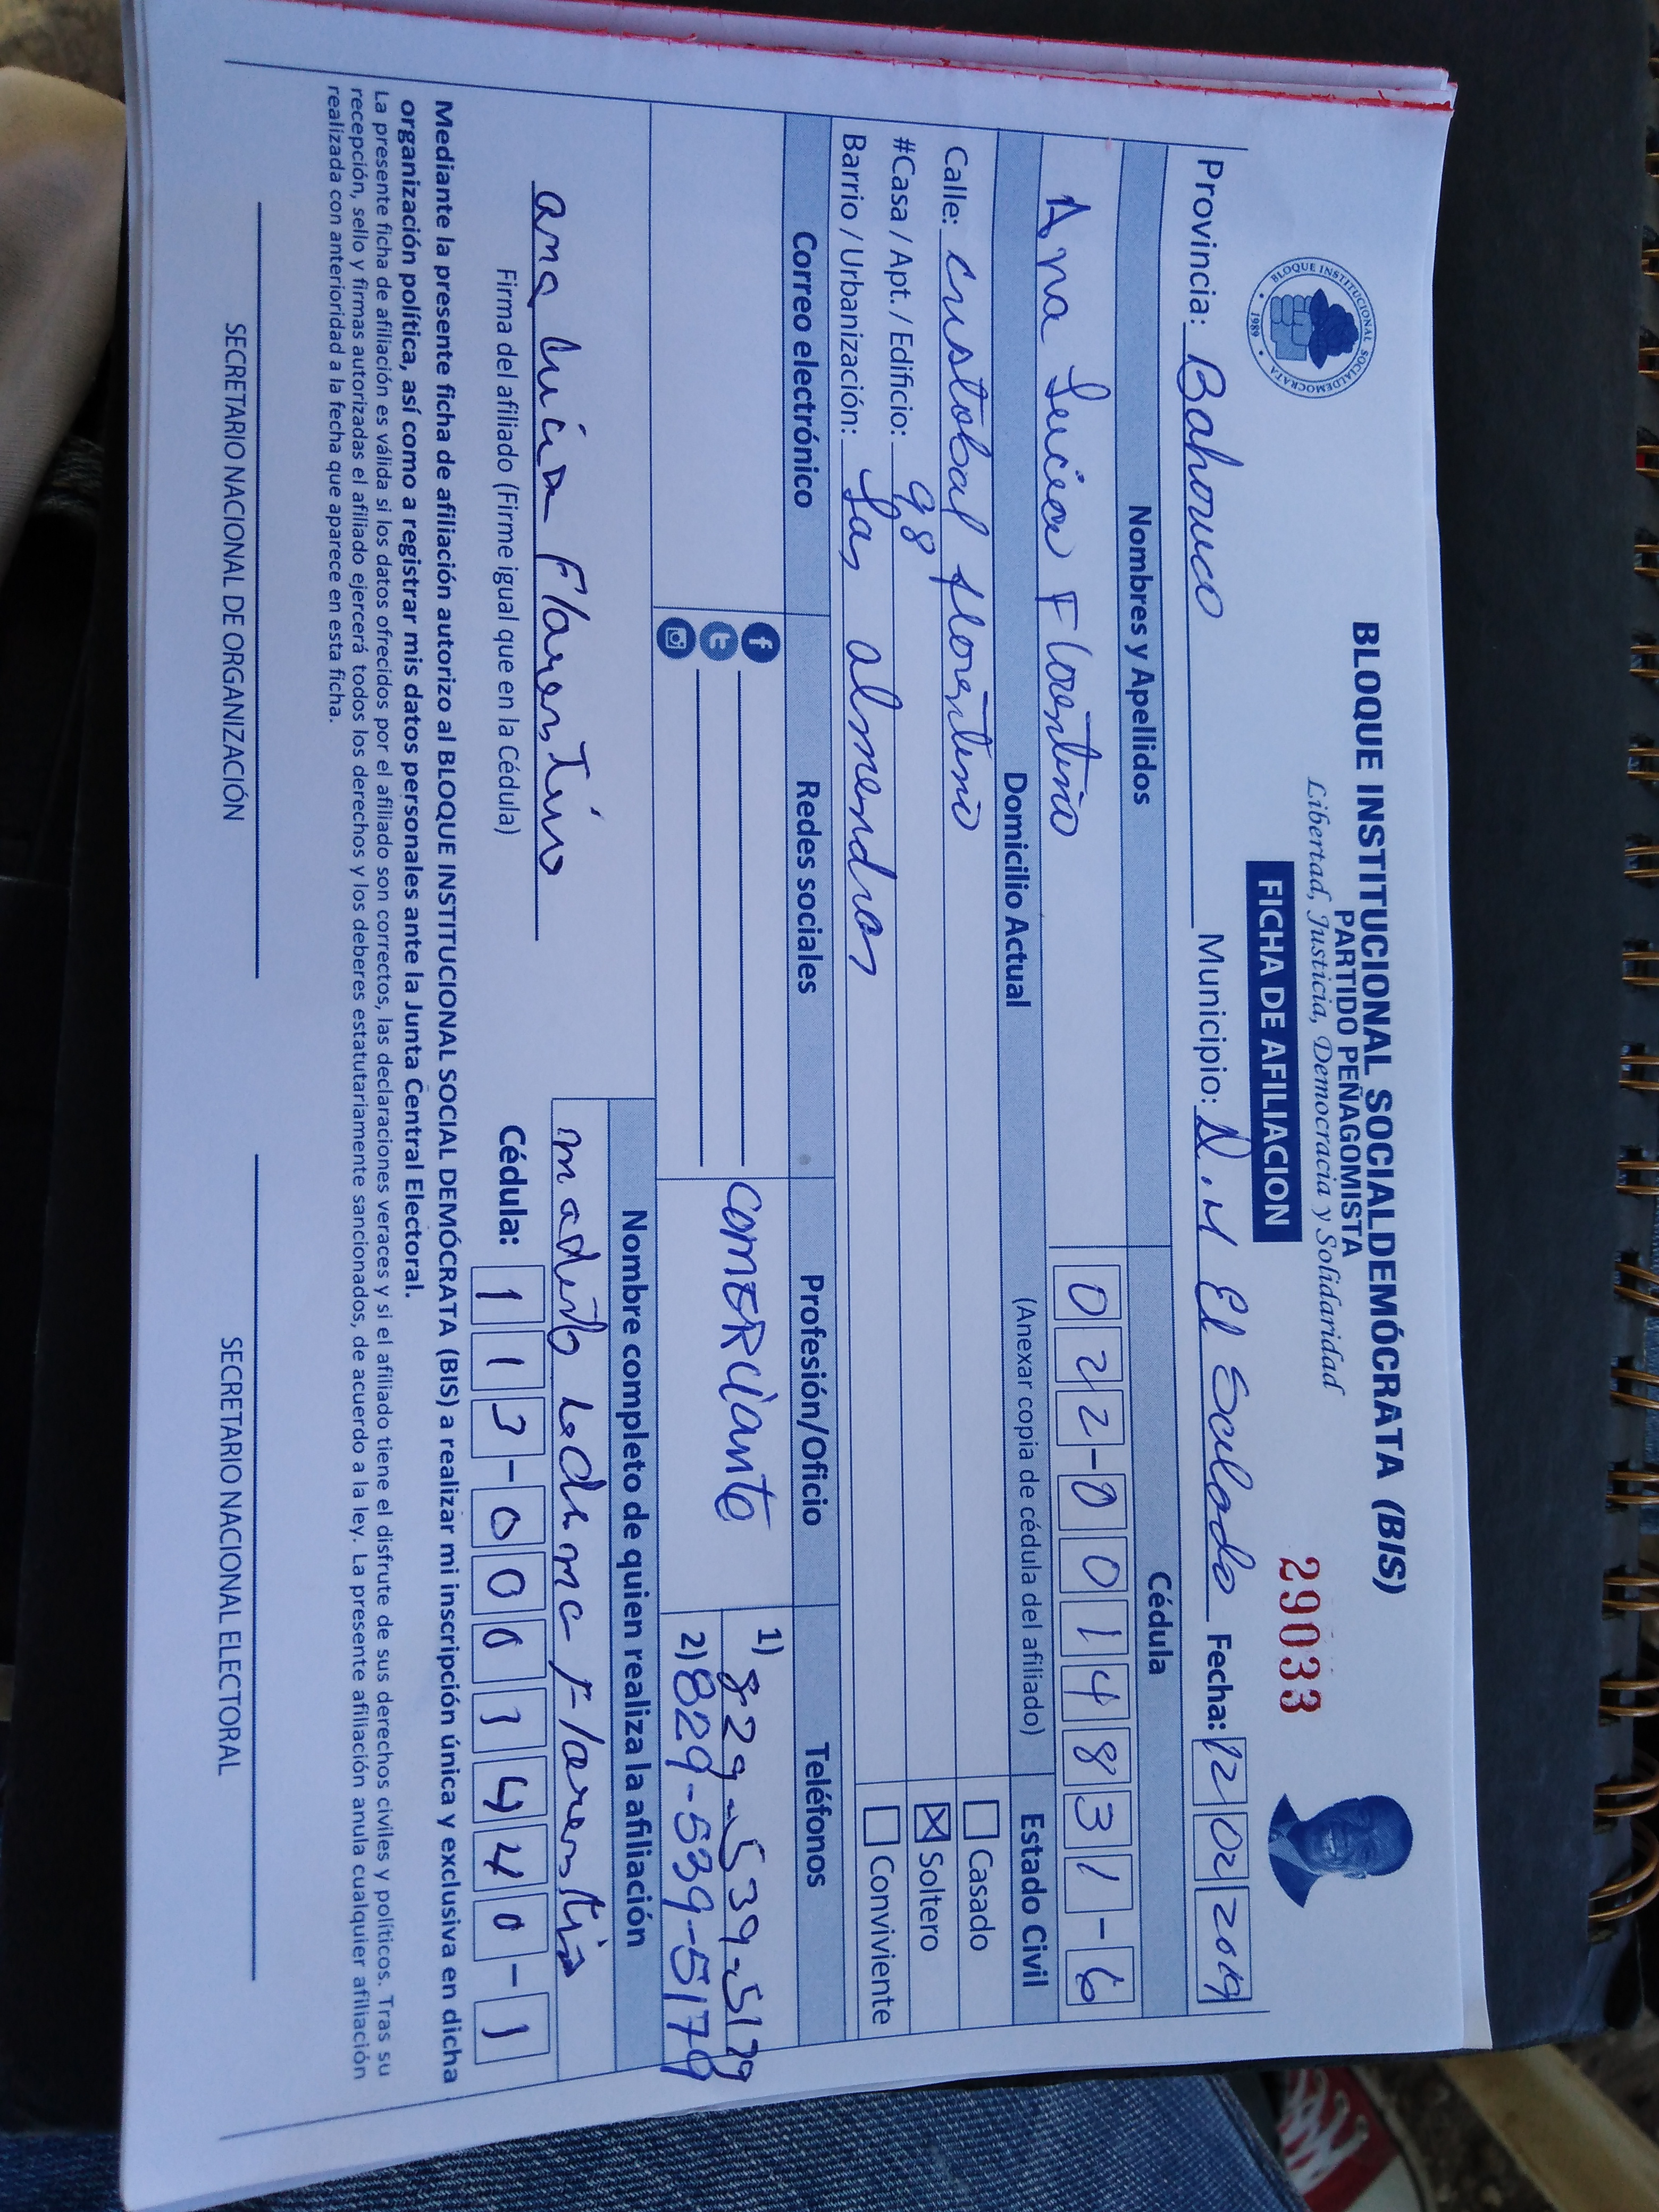 BLOQUE INSTITUCIONAL SOCIALDEMÓCRATA (BIS)
PARTIDO PEÑAGOMISTA
Libertad, Justicia, Democracia y Solidaridad
BLOQUE INSTITUCIONAL SOCIALDEMOCRATA
1989
FICHA DE AFILIACION
29033
Provincia: Bahoruco Municipio: D.M El Salado Fecha: 12 02 2019
Nombres y Apellidos Cédula
Ana Lucia Florentino 022-0014831-6
Domicilio Actual (Anexar copia de cédula del afiliado) Estado Civil
Calle: Cristobal florentino Casado
#Casa / Apt. / Edificio: 98 Soltero
Barrio / Urbanización: Las almendras Conviviente
Correo electrónico Redes sociales Profesión/Oficio Teléfonos
COMERCiante 1) 829-539-5179
2) 829-539-5179
Nombre completo de quien realiza la afiliación
ana lucia Florentino
Firma del afiliado (Firme igual que en la Cédula)
Cédula: 113-0003440-1
Mediante la presente ficha de afiliación autorizo al BLOQUE INSTITUCIONAL SOCIAL DEMÓCRATA (BIS) a realizar mi inscripción única y exclusiva en dicha
organización política, así como a registrar mis datos personales ante la Junta Central Electoral.
La presente ficha de afiliación es válida si los datos ofrecidos por el afiliado son correctos, las declaraciones veraces y si el afiliado tiene el disfrute de sus derechos civiles y políticos. Tras su
recepción, sello y firmas autorizadas el afiliado ejercerá todos los derechos y los deberes estatutariamente sancionados, de acuerdo a la ley. La presente afiliación anula cualquier afiliación
realizada con anterioridad a la fecha que aparece en esta ficha.
SECRETARIO NACIONAL DE ORGANIZACIÓN SECRETARIO NACIONAL ELECTORAL